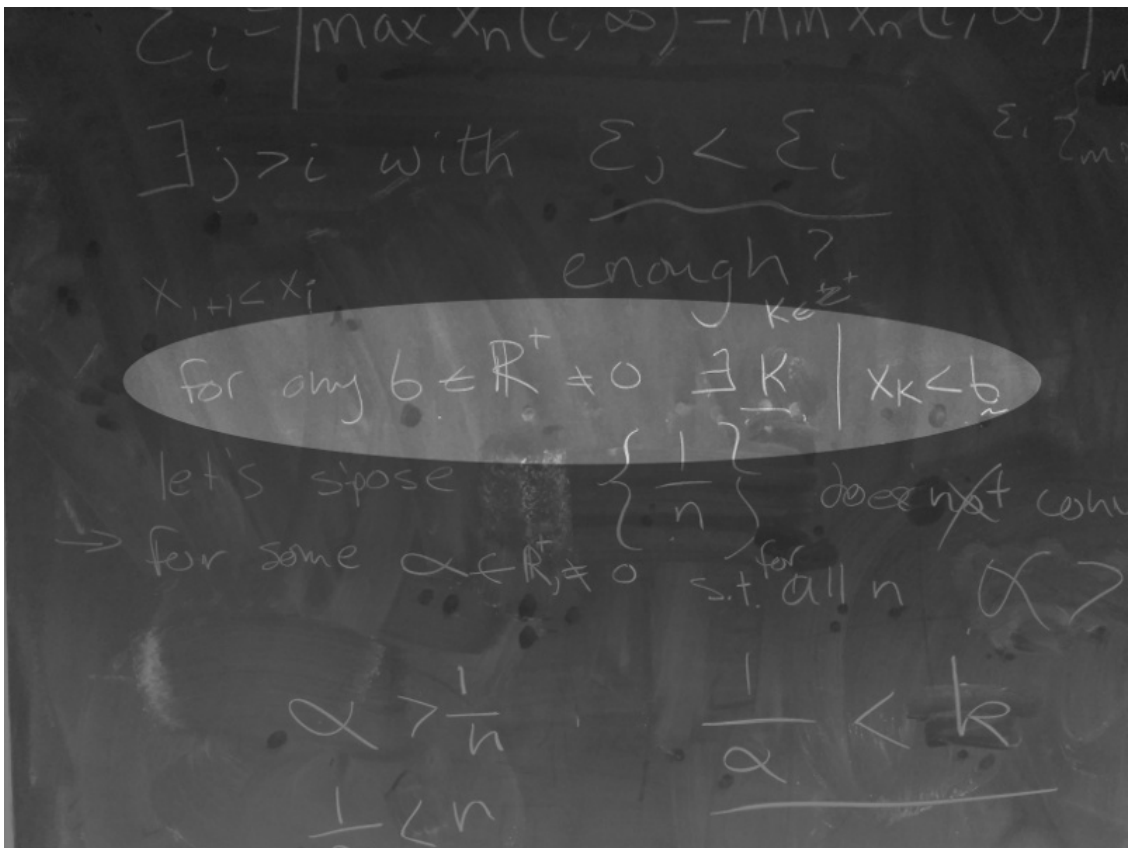 Σi = | max xn(i, ∞) - min xn(i, ∞) |
∃ j > i with Σj < Σi
Σi {
enough?
xi+1 < xi
k ∈ Z+
for any b ∈ R+ ≠ 0 ∃ K | xK < b
let's spose { 1/n } does not conv
→ for some α ∈ R+, ≠ 0 s.t. for all n α >
α > 1/n 1/α < k
< n